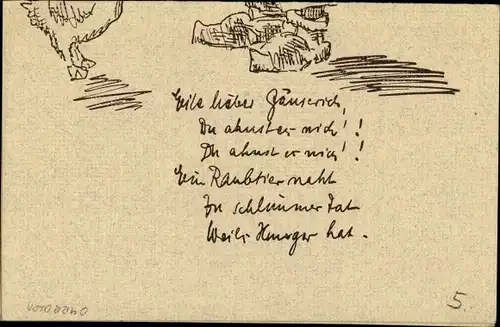 Eile lieber Gänserich,
Du ahnst es nich'!
Du ahnst es nich'!
Ein Raubtier naht
Zu schlimmer Tat
Weil's Hunger hat.
5.